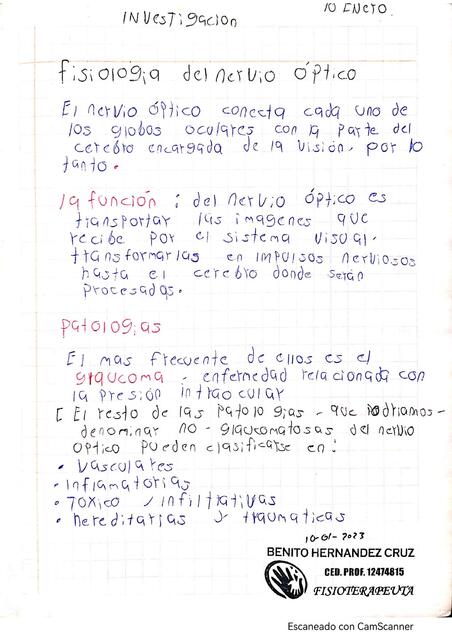 Investigacion
10 ENERO
fisiologia del nervio óptico
El nervio óptico conecta cada uno de
los globos oculares con la parte del
cerebro encargada de la visión. por lo
tanto.
la función : del nervio óptico es
transportar las imagenes que
recibe por el sistema visual.
transformarlas en impulsos nerviosos
hasta el cerebro donde serán
procesadas.
Patologias
El mas frecuente de ellos es el
glaucoma - enfermedad relacionada con
la presión intraocular
[ El resto de las patologias - que podriamos -
denominar no - glaucomatosas del nervio
optico pueden clasificarse en :
• Vasculares
• inflamatorias
• Toxico / infiltrativas
• hereditarias y traumaticas
10-01-2023
BENITO HERNANDEZ CRUZ
CED. PROF. 12474815
FISIOTERAPEUTA
Escaneado con CamScanner